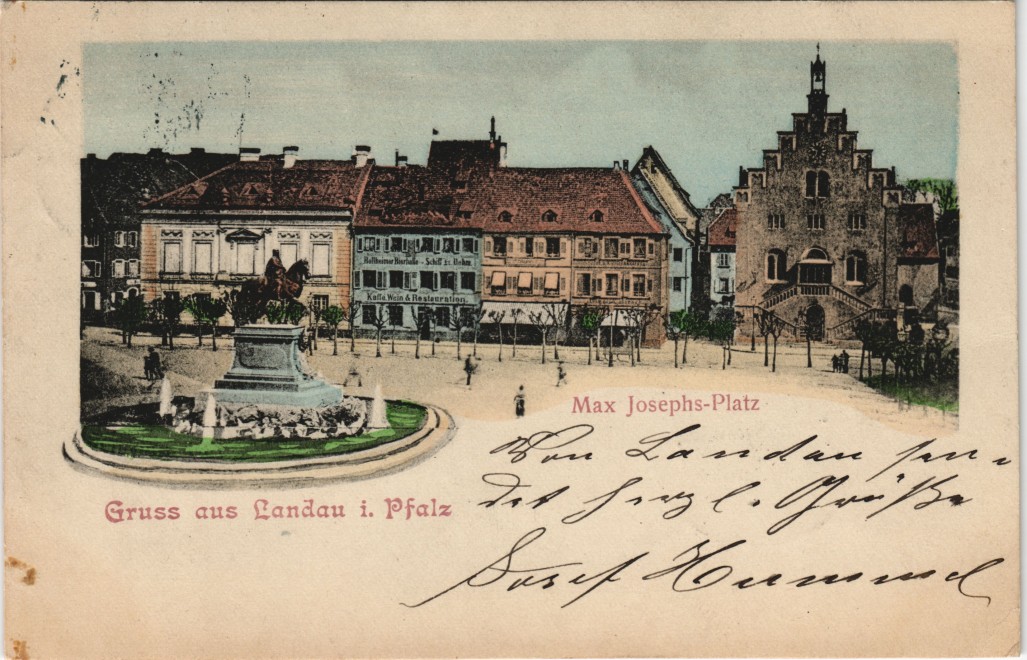 Hoftheimer Bierhalle - Schiff zz. Behm.
Kaffe, Wein & Restauration.
Max Josephs-Platz
Gruss aus Landau i. Pfalz
Von Landau sen-
det herzl. Grüße
Josef Hummel